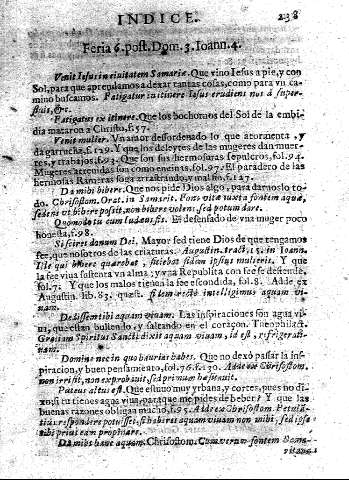 INDICE. 238
Feria 6. post. Dom. 3. Ioann. 4.
Venit Iesus in ciuitatem Samariæ. Que vino Iesus a pie, y con
Sol, para que aprendamos a dexar tantas cosas, como para vn ca-
mino buscamos. Fatigatur in itinere Iesus erudiens nos à super-
fluis, &c.
Fatigatus ex itinere. Que los bochornos del Sol de la embi-
dia mataron a Christo, f. 57.
Venit mulier. Vn amor desordenado lo que atormenta, y
da garrucha, f. 129. Y que los deleytes de las mugeres dan muer-
tes, y trabajos, f. 93. Que son sus hermosuras sepulcros, fol. 94.
Mugeres arreadas son como eneinas, fol. 97. El paradero de las
hermosas Rameras soga arrastrando, y mal fin, f. 127.
Da mihi bibere. Que nos pide Dios algo, para darnoslo to-
do. Chrisostom. Orat. in Samarit. Fons vitæ iuxta fontem aquæ,
sedens vt bibere posit, non bibere volens, sed potum dare.
Quomodo tu cum Iudæus sis. El desenfado de vna muger poco
honesta, f. 98.
Si scires donum Dei. Mayor sed tiene Dios de que tengamos
fee, que nosotros de las criaturas. Augustin. tract. 15. in Ioann.
Ille qui bibere quærebat, sitiebat fidem ipsius mulieris. Y que
la fee viua sustenta vn alma; y vna Republica con fee se defiende,
fol. 7. Y que los malos tienen la fee escondida, fol. 8. Adde ex
Augustin. lib. 83. quæst. rectè intelligimus aquam vi-
uam.
Dedisset tibi aquam viuam. Las inspiraciones son agua vi-
ua, que estan bullendo, y saltando en el coraçon. Theophilact.
Gratiam Spiritus Sancti dixit aquam viuam, id est, refrigerati-
uam.
Domine nec in quo haurias habes. Que no dexò passar la ins-
piracion, y buen pensamiento, fol. 76. f. 130. Adde ex Chrisostom.
non irrisit, non exprobauit, sed primum hæsitauit.
Puteus altus est. Que estuuo muy vrbana, y cortes, pues no di-
xo, si tu tienes agua viua, para que me pides de beber? Y que las
buenas razones obligan macho, f. 95. Adde ex Chrisostom. Petisti,
vt respondere potuisset, si haberes aquam viuam non mihi, sed ipse
tibi prius eam prophinare.
Da mihi hanc aquam. Chrisostom. Cum verum fontem Sama-
ritana